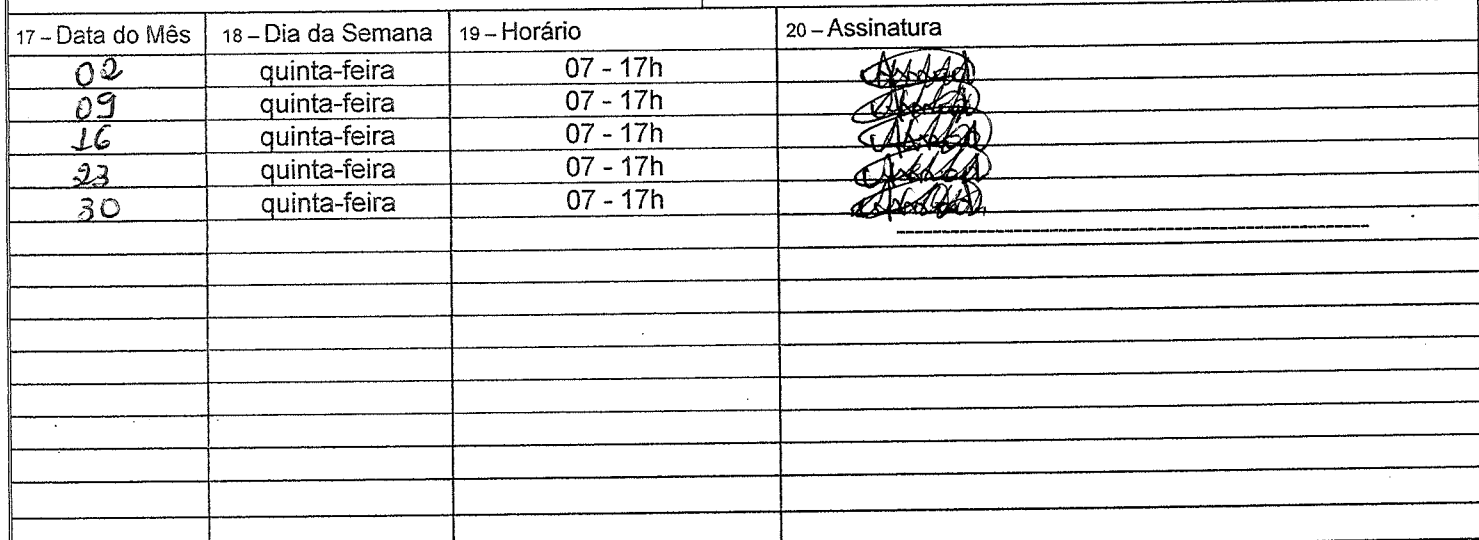 17 – Data do Mês 18 – Dia da Semana 19 – Horário 20 – Assinatura
02 quinta-feira 07 - 17h
09 quinta-feira 07 - 17h
16 quinta-feira 07 - 17h
23 quinta-feira 07 - 17h
30 quinta-feira 07 - 17h